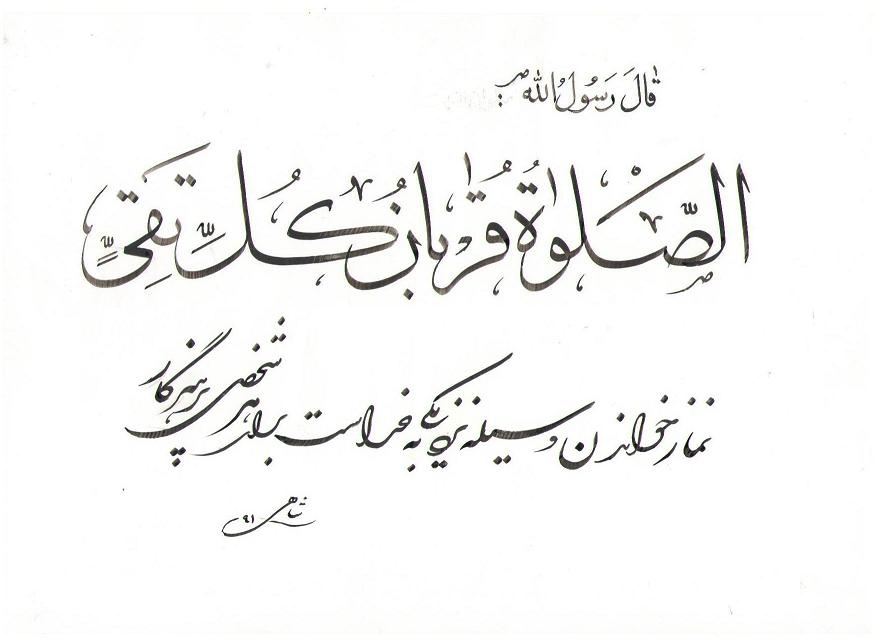 قالَ رَسُولُ الله ص :
الصَّلوةُ قُربانُ كُلِّ تَقِيٍّ
نماز خواندن وسیله نزدیکی به خداست برای هر شخص پرهیزگار
شاهی ۹۱